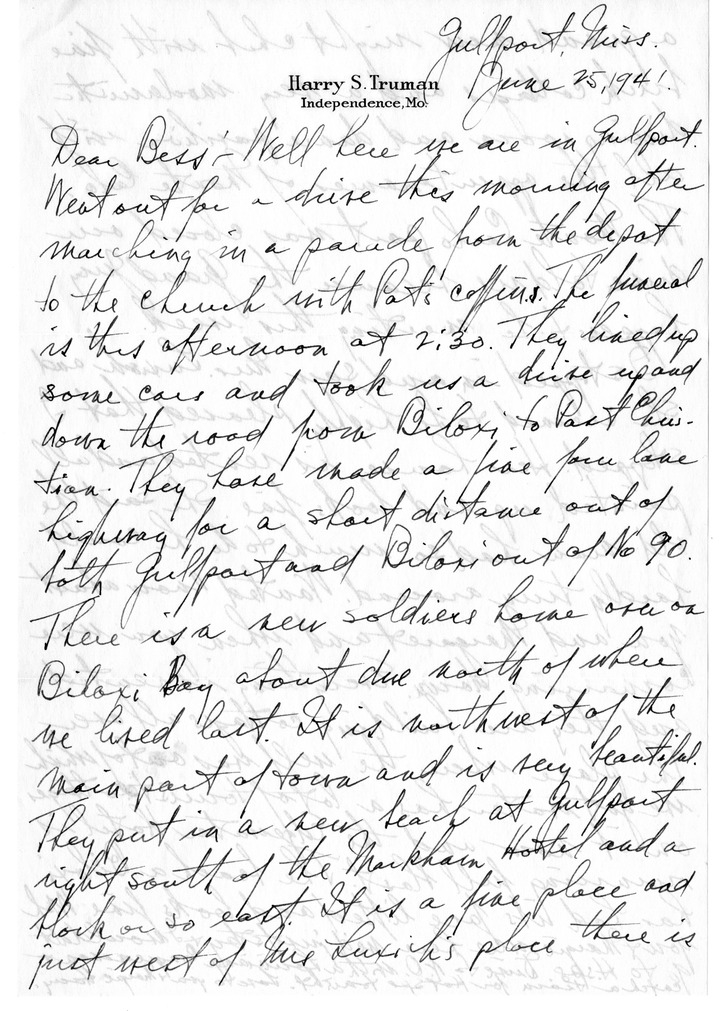 Gulfport, Miss.
Harry S. Truman
June 25, 1941.
Independence, Mo.
Dear Bess:- Well here we are in Gulfport.
Went out for a drive this morning after
marching in a parade from the depot
to the church with Pat's coffins. The funeral
is this afternoon at 2:30. They lined up
some cars and took us a drive up and
down the road from Biloxi to Past Chris-
tian. They have made a fine four lane
highway for a short distance out of
both Gulfport and Biloxi out of No 90.
There is a new soldiers home over on
Biloxi Bay about due north of where
we lived last. It is northwest of the
main part of town and is very beautiful.
They put in a new beach at Gulfport
right south of the Markham Hotel and a
block or so east. It is a fine place and
just west of Mrs place there is